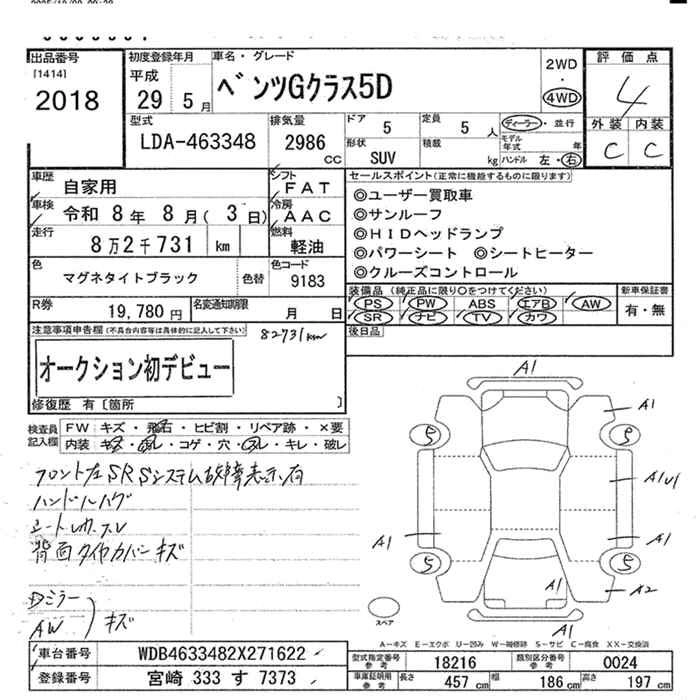 出品番号
[1414]
2018
初度登録年月
平成
29 5月
車名・グレード
ベンツGクラス5D
2WD
・
4WD
評価点
4
外装 内装
C C
型式
LDA-463348
排気量
2986
cc
ドア 5
定員 5 人
形状 SUV
積載 kg
ディーラー・並行
モデル年式 年
ハンドル 左・右
車歴
自家用
シフト
FAT
車検
令和 8年 8月( 3日)
冷房
AAC
走行
8万2千731 km
燃料
軽油
色
マグネタイトブラック
色替
色コード
9183
R券
19,780円
名変通知期限
月 日
セールスポイント(正常に機能するものに限ります)
◎ユーザー買取車
◎サンルーフ
◎HIDヘッドランプ
◎パワーシート ◎シートヒーター
◎クルーズコントロール
装備品(純正品に限り○をつけてください)
PS PW ABS エアB AW
SR ナビ TV カワ
新車保証書
有・無
後日品
注意事項申告欄(不具合内容等は具体的に記入して下さい)
82731km
オークション初デビュー
修復歴 有〔箇所 〕
検査員記入欄
FW キズ・飛石・ヒビ割・リペア跡・×要
内装 キズ・汚レ・コゲ・穴・スレ・キレ・破レ
フロント左SRSシステム故障表示有
ハンドルハゲ
シートしわ.スレ
背面タイヤカバーキズ
Dミラー
AW
キズ
A1
A1
5 5
A1U1
A1 A1
5 5
A1
A2
スペア
A1
A-キズ E-エクボ U-凹み W-補修跡 S-サビ C-腐食 XX-交換済
車台番号 WDB4633482X271622
登録番号 宮崎 333 す 7373
型式指定番号 参考 18216
類別区分番号 参考 0024
車庫証明用 参考
長さ 457 cm 幅 186 cm 高さ 197 cm